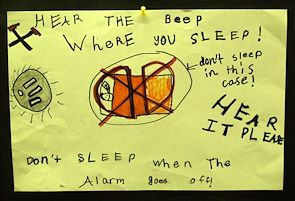 HEAR THE BEEP
WHERE YOU SLEEP!
don't sleep
in this
case!
HEAR
IT PLEASE
DON'T SLEEP when The
Alarm goes off!